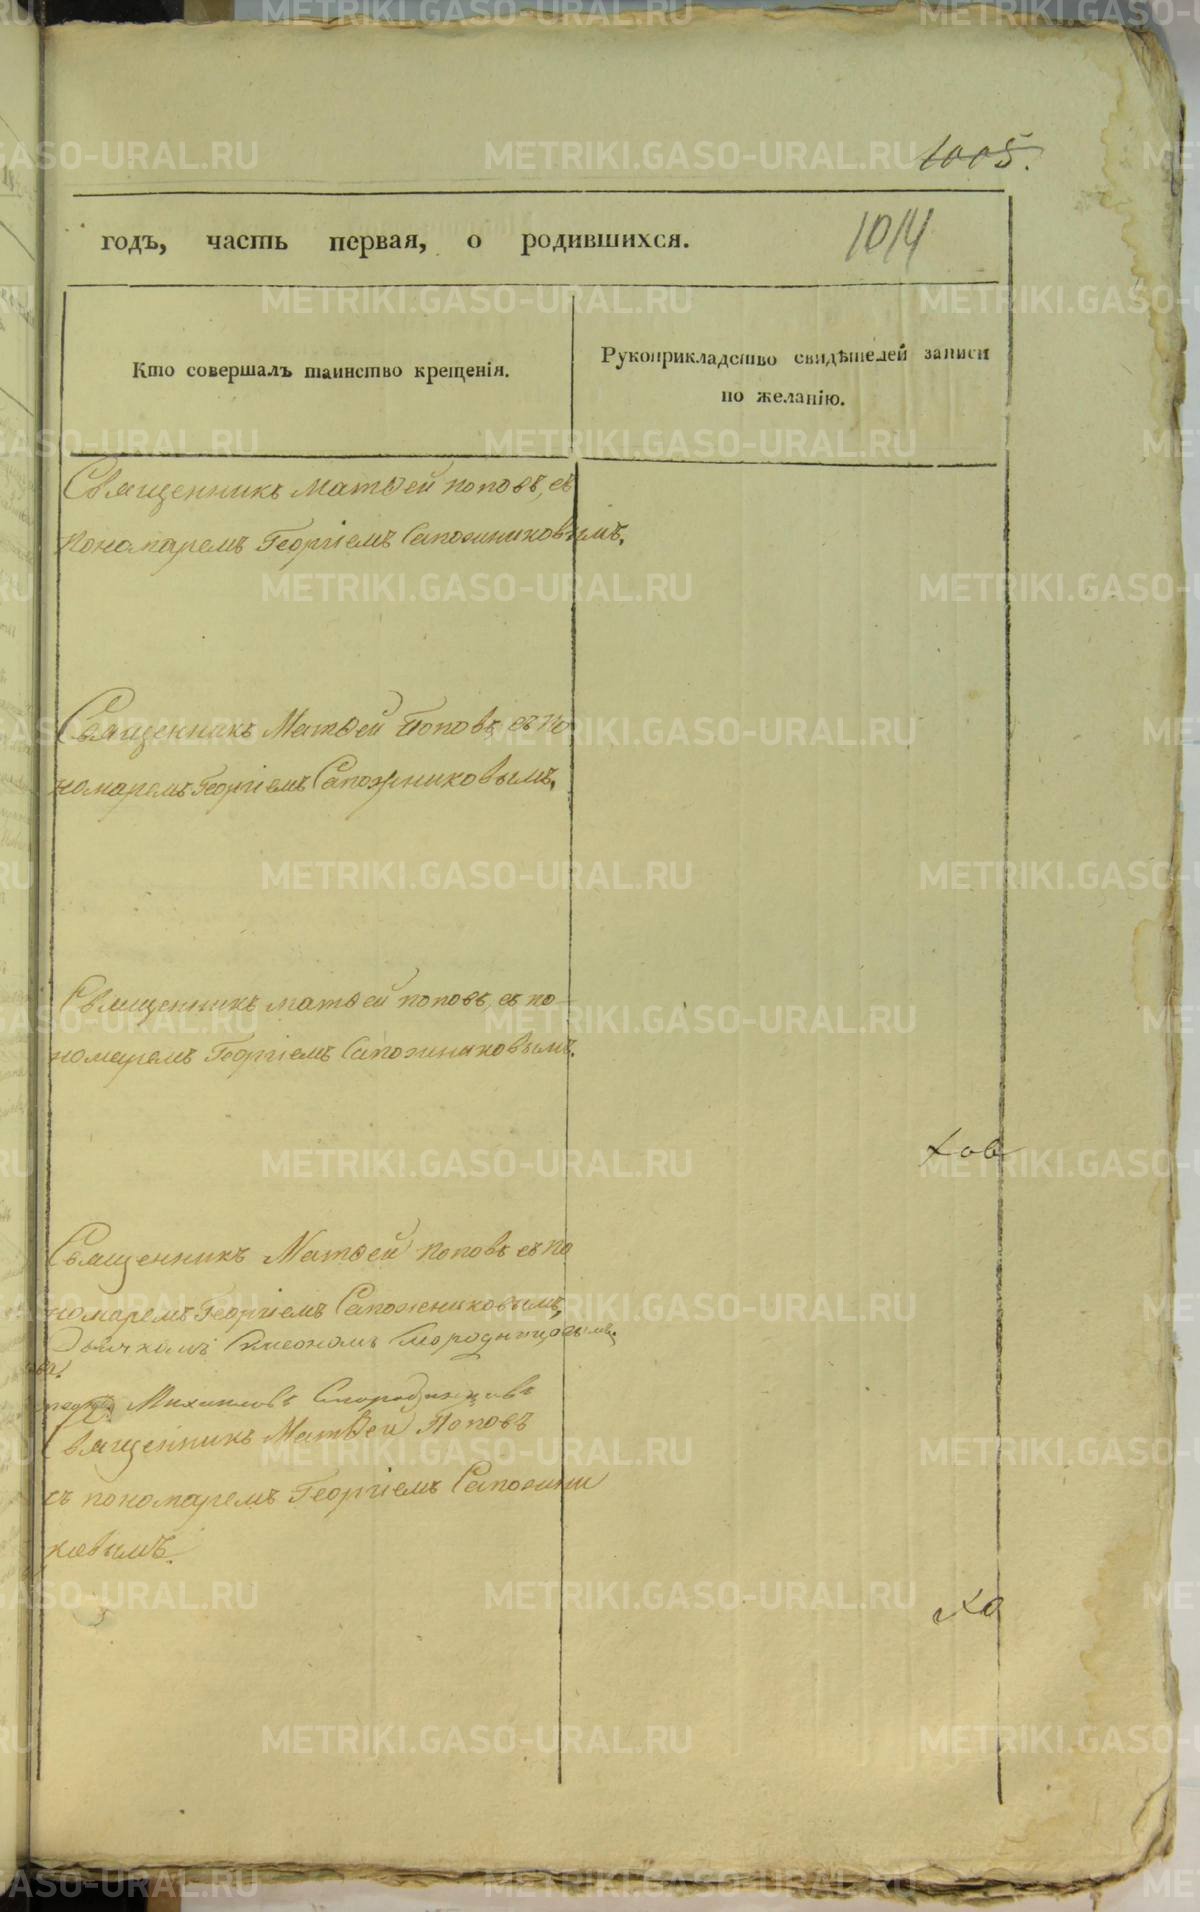 1005.
годъ, часть первая, о родившихся.
1014
Кто совершалъ таинство крещенія.
Рукоприкладство свидѣтелей записи
по желанію.
Священникъ Матѳей Поповъ, съ
пономаремъ Георгіемъ Сапожниковымъ.
Священникъ Матѳей Поповъ, съ по
номаремъ Георгіемъ Сапожниковымъ.
Священникъ Матѳей Поповъ, съ по-
номаремъ Георгіемъ Сапожниковымъ.
хов
Священникъ Матѳей Поповъ съ по
номаремъ Георгіемъ Сапожниковымъ,
Дьячкомъ Симеономъ
Михаиловъ
Священникъ Матѳей Поповъ
съ пономаремъ Георгіемъ Сапожни
ковымъ.
хо
METRIKI.GASO-URAL.RU